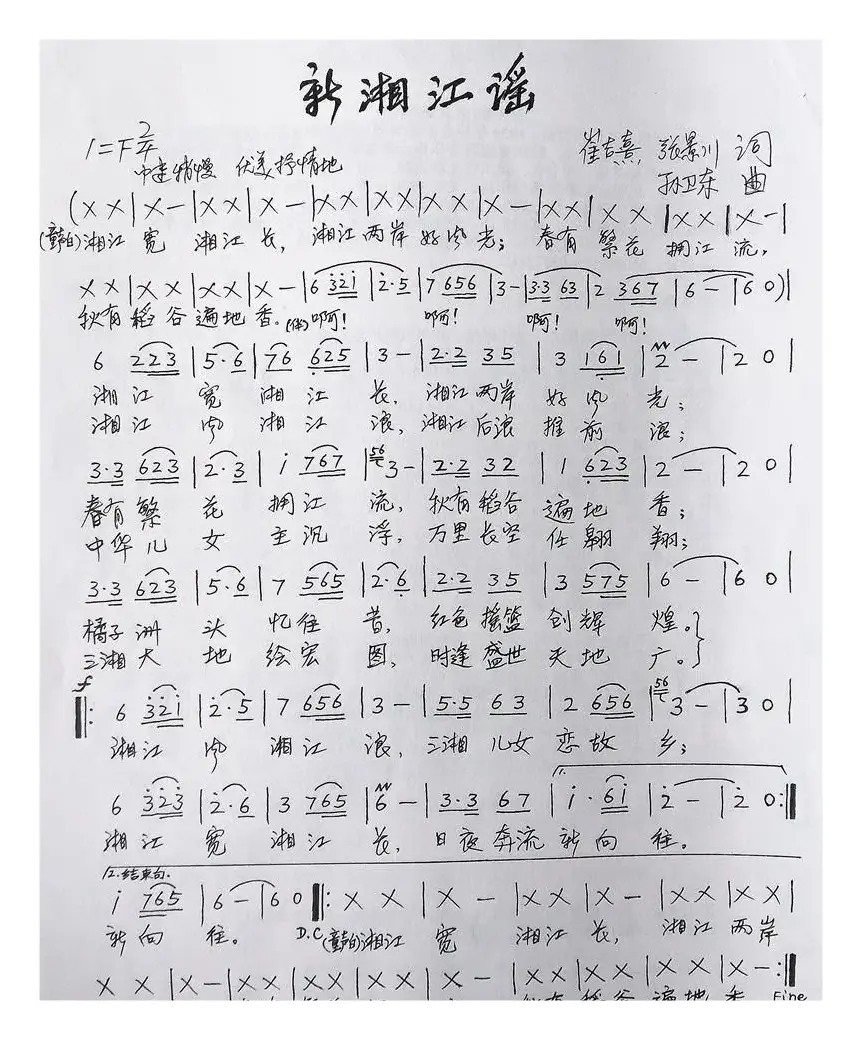 新湘江谣
1=F 2/4
中速稍慢 优美抒情地
崔吉熹, 张景川 词
孙卫东 曲
(X X | X — | X X | X — | X X | X X | X X | X — | X X | X X | X X | X — |
(童声白)湘江 宽 湘江 长, 湘江 两岸 好风 光; 春有 繁花 拥江 流,
X X | X X | X X | X — | 6 321 | 2·5 | 7 656 | 3 — | 3·3 63 | 2 367 | 6 — | 6 0) |
秋有 稻谷 遍地 香。(伴)啊! 啊! 啊! 啊!
6 223 | 5·6 | 76 625 | 3 — | 2·2 35 | 3 161 | 2 — | 2 0 |
湘江 宽 湘江 长, 湘江两岸 好风 光;
湘江 风 湘江 浪, 湘江后浪 推前 浪;
3·3 623 | 2·3 | i 767 | 56 3 — | 2·2 32 | 1 623 | 2 — | 2 0 |
春有繁 花 拥江 流, 秋有稻谷 遍地 香;
中华儿 女 主沉 浮, 万里长空 任翱 翔;
3·3 623 | 5·6 | 7 565 | 2·6 | 2·2 35 | 3 575 | 6 — | 6 0 |
橘子洲 头 忆往 昔, 红色摇篮 创辉 煌。}
三湘大 地 绘宏 图, 时逢盛世 天地 广。}
f
‖: 6 321 | 2·5 | 7 656 | 3 — | 5·5 63 | 2 656 | 56 3 — | 3 0 |
湘江 风 湘江 浪, 三湘儿女 恋故 乡;
6 323 | 2·6 | 3 765 | 6 — | 3·3 67 | i·6i | 2 — | 2 0 :‖
湘江 宽 湘江 长, 日夜奔流 新向 往。
2.结束句.
i 765 | 6 — | 6 0 ‖: X X | X — | X X | X — | X X | X X |
新向 往。 D.C (童声白)湘江 宽 湘江 长, 湘江 两岸
X X | X — | X X | X X | X X | X — | X X | X X | X X | X — :‖
秋有 稻谷 遍地 香 Fine